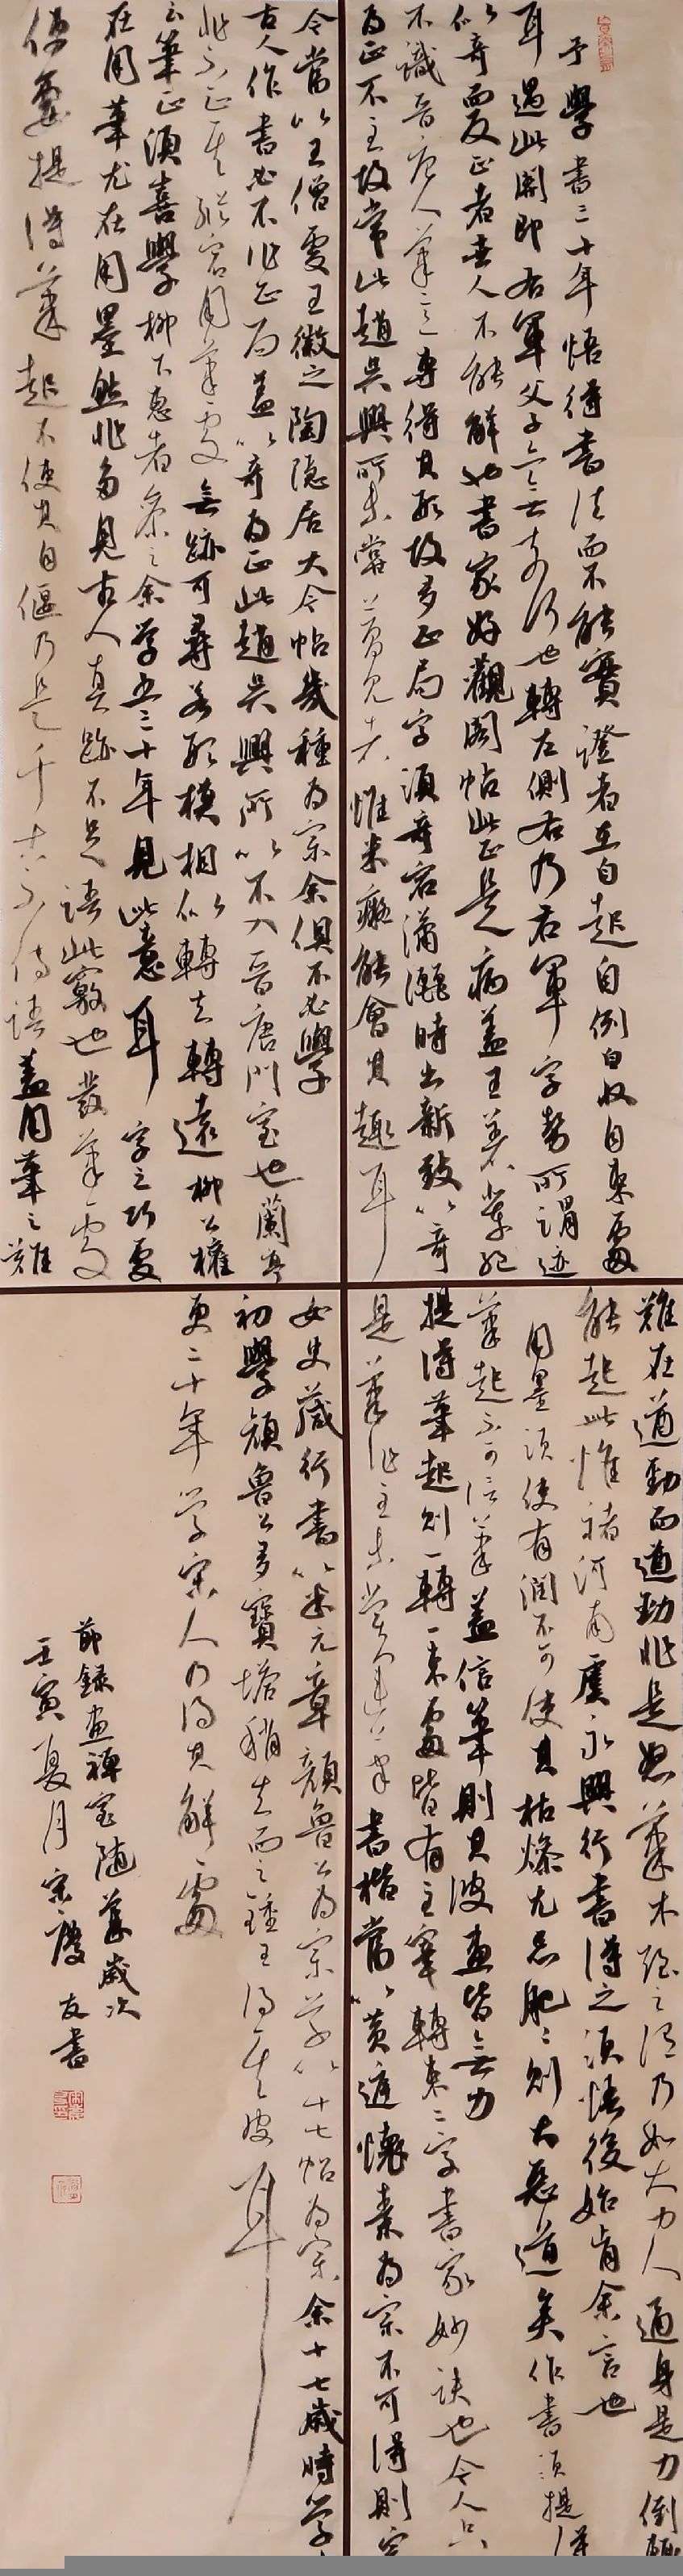 予學書三十年悟得書法而不能實證者在自起自倒自收自束處
耳過此關即右軍父子亦無奈何也轉左側右乃右軍字勢所謂迹
似奇而反正者世人不能解也書家好觀閣帖此正是病蓋王著輩絕
不識晉唐人筆意專得其形故多正局字須奇宕瀟灑時出新致以奇
為正不主故常此趙吳興所未嘗夢見者惟米癡能會其趣耳
今當以王僧虔王徽之陶隐居大令帖幾種為宗余俱不必學
古人作書必不作正局蓋以奇為正此趙吳興所以不入晉唐門室也蘭亭
非不正其縱宕用筆處無跡可尋若形模相似轉去轉遠柳公權
云筆正須善學柳下惠者參之余学書三十年見此意耳字之巧處
在用筆尤在用墨然非多見古人真跡不足語此竅也發筆處
便要提得筆起不使其自偃乃是千古不傳語蓋用筆之難
難在遒勁而遒勁非是怒筆木強之謂乃如大力人通身是力倒輒
能起此惟褚河南虞永興行書得之須悟後始肯余言也
用墨須使有潤不可使其枯燥尤忌肥肥則大惡道矣作書須提得
筆起不可信筆蓋信筆則其波畫皆無力
提得筆起則一轉一束處皆有主宰轉束二字書家妙訣也今人只
是筆作主未嘗運筆書楷當以黃庭懷素為宗不可得則宗
女史箴行書以米元章顏魯公為宗草以十七帖為宗余十七歲時學書
初學顏魯公多寶塔稍去而之鍾王得其皮耳
更二十年学宋人乃得其解處
節錄畫禪室隨筆歲次
壬寅夏月宋慶友書